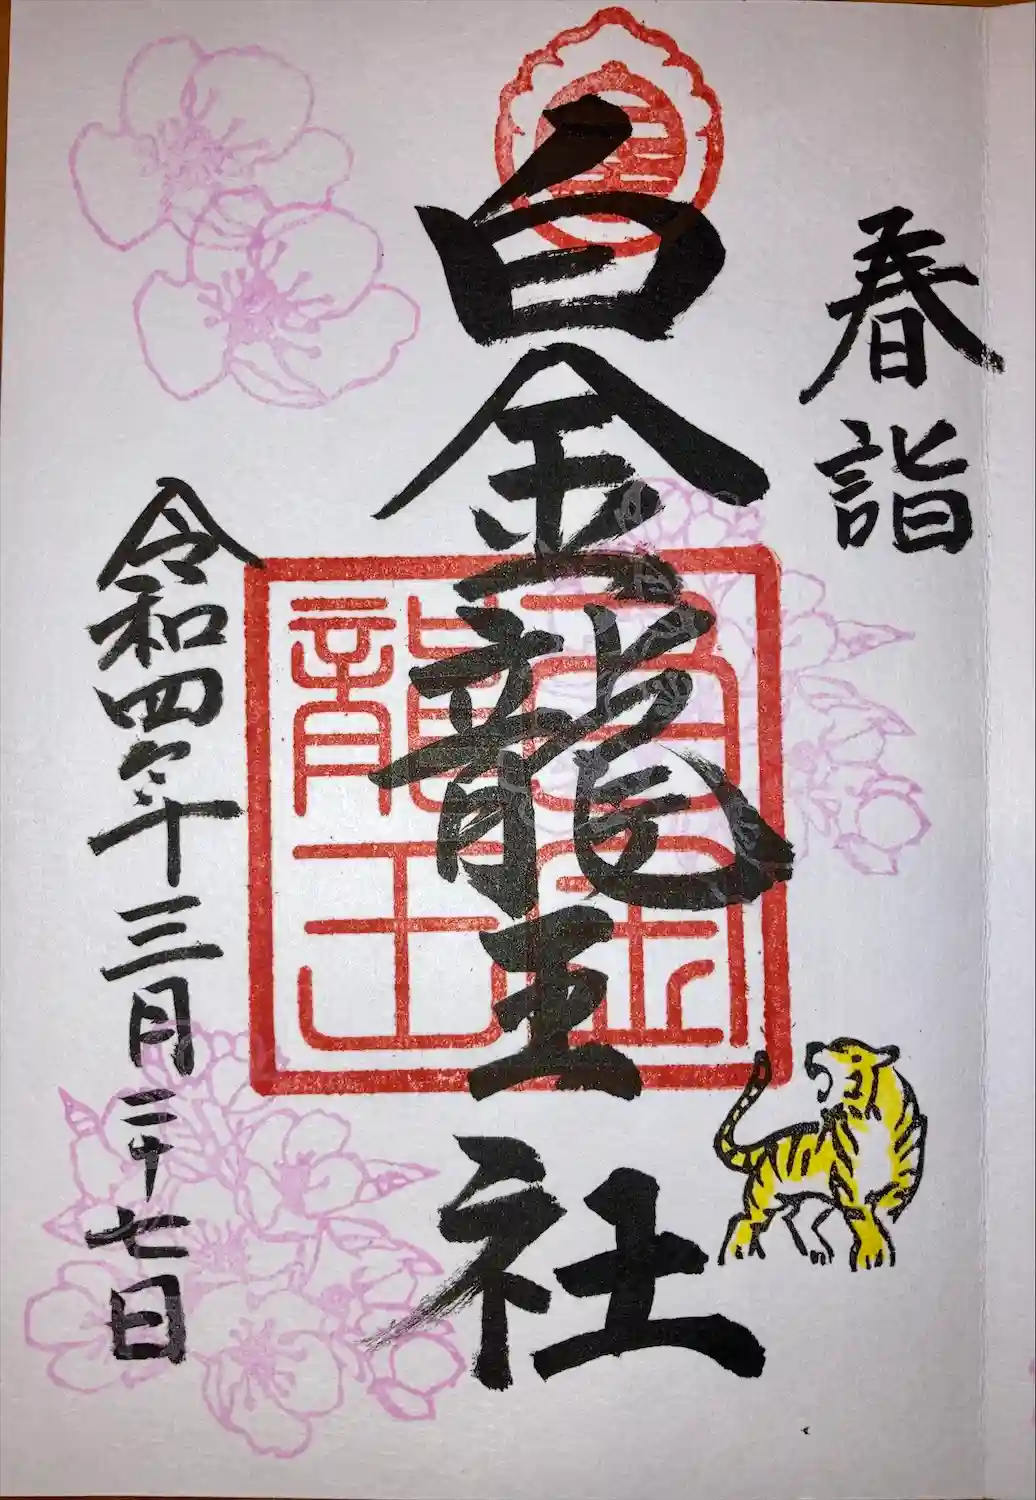 春詣
白金龍王社
令和四年三月二十七日